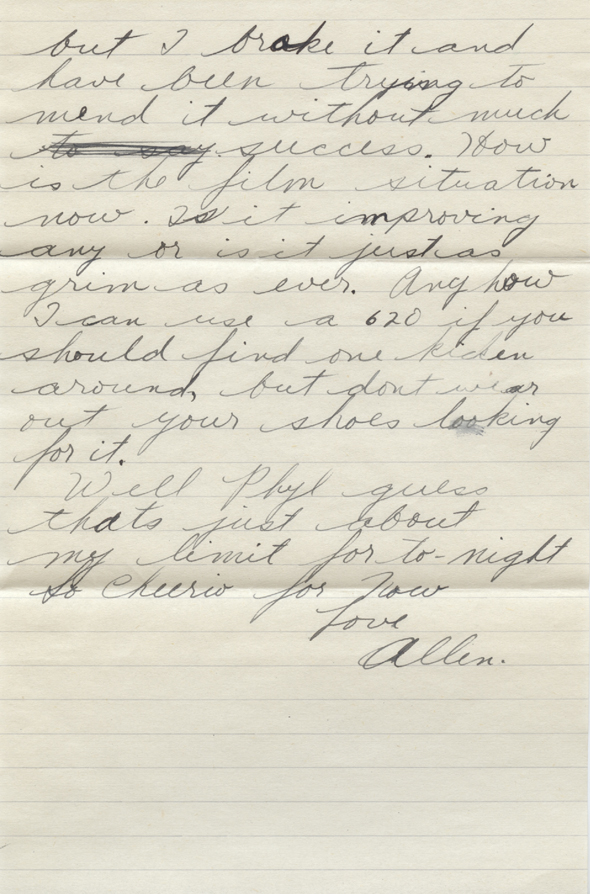 but I broke it and
have been trying to
mend it without much
to say success. How
is the film situation
now. Is it improving
any or is it just as
grim as ever. Any how
I can use a 620 if you
should find one kiden
around, but dont wear
out your shoes looking
for it.
Well Phyl guess
thats just about
my limit for to-night
So Cheerio for Now
Love
Allen.